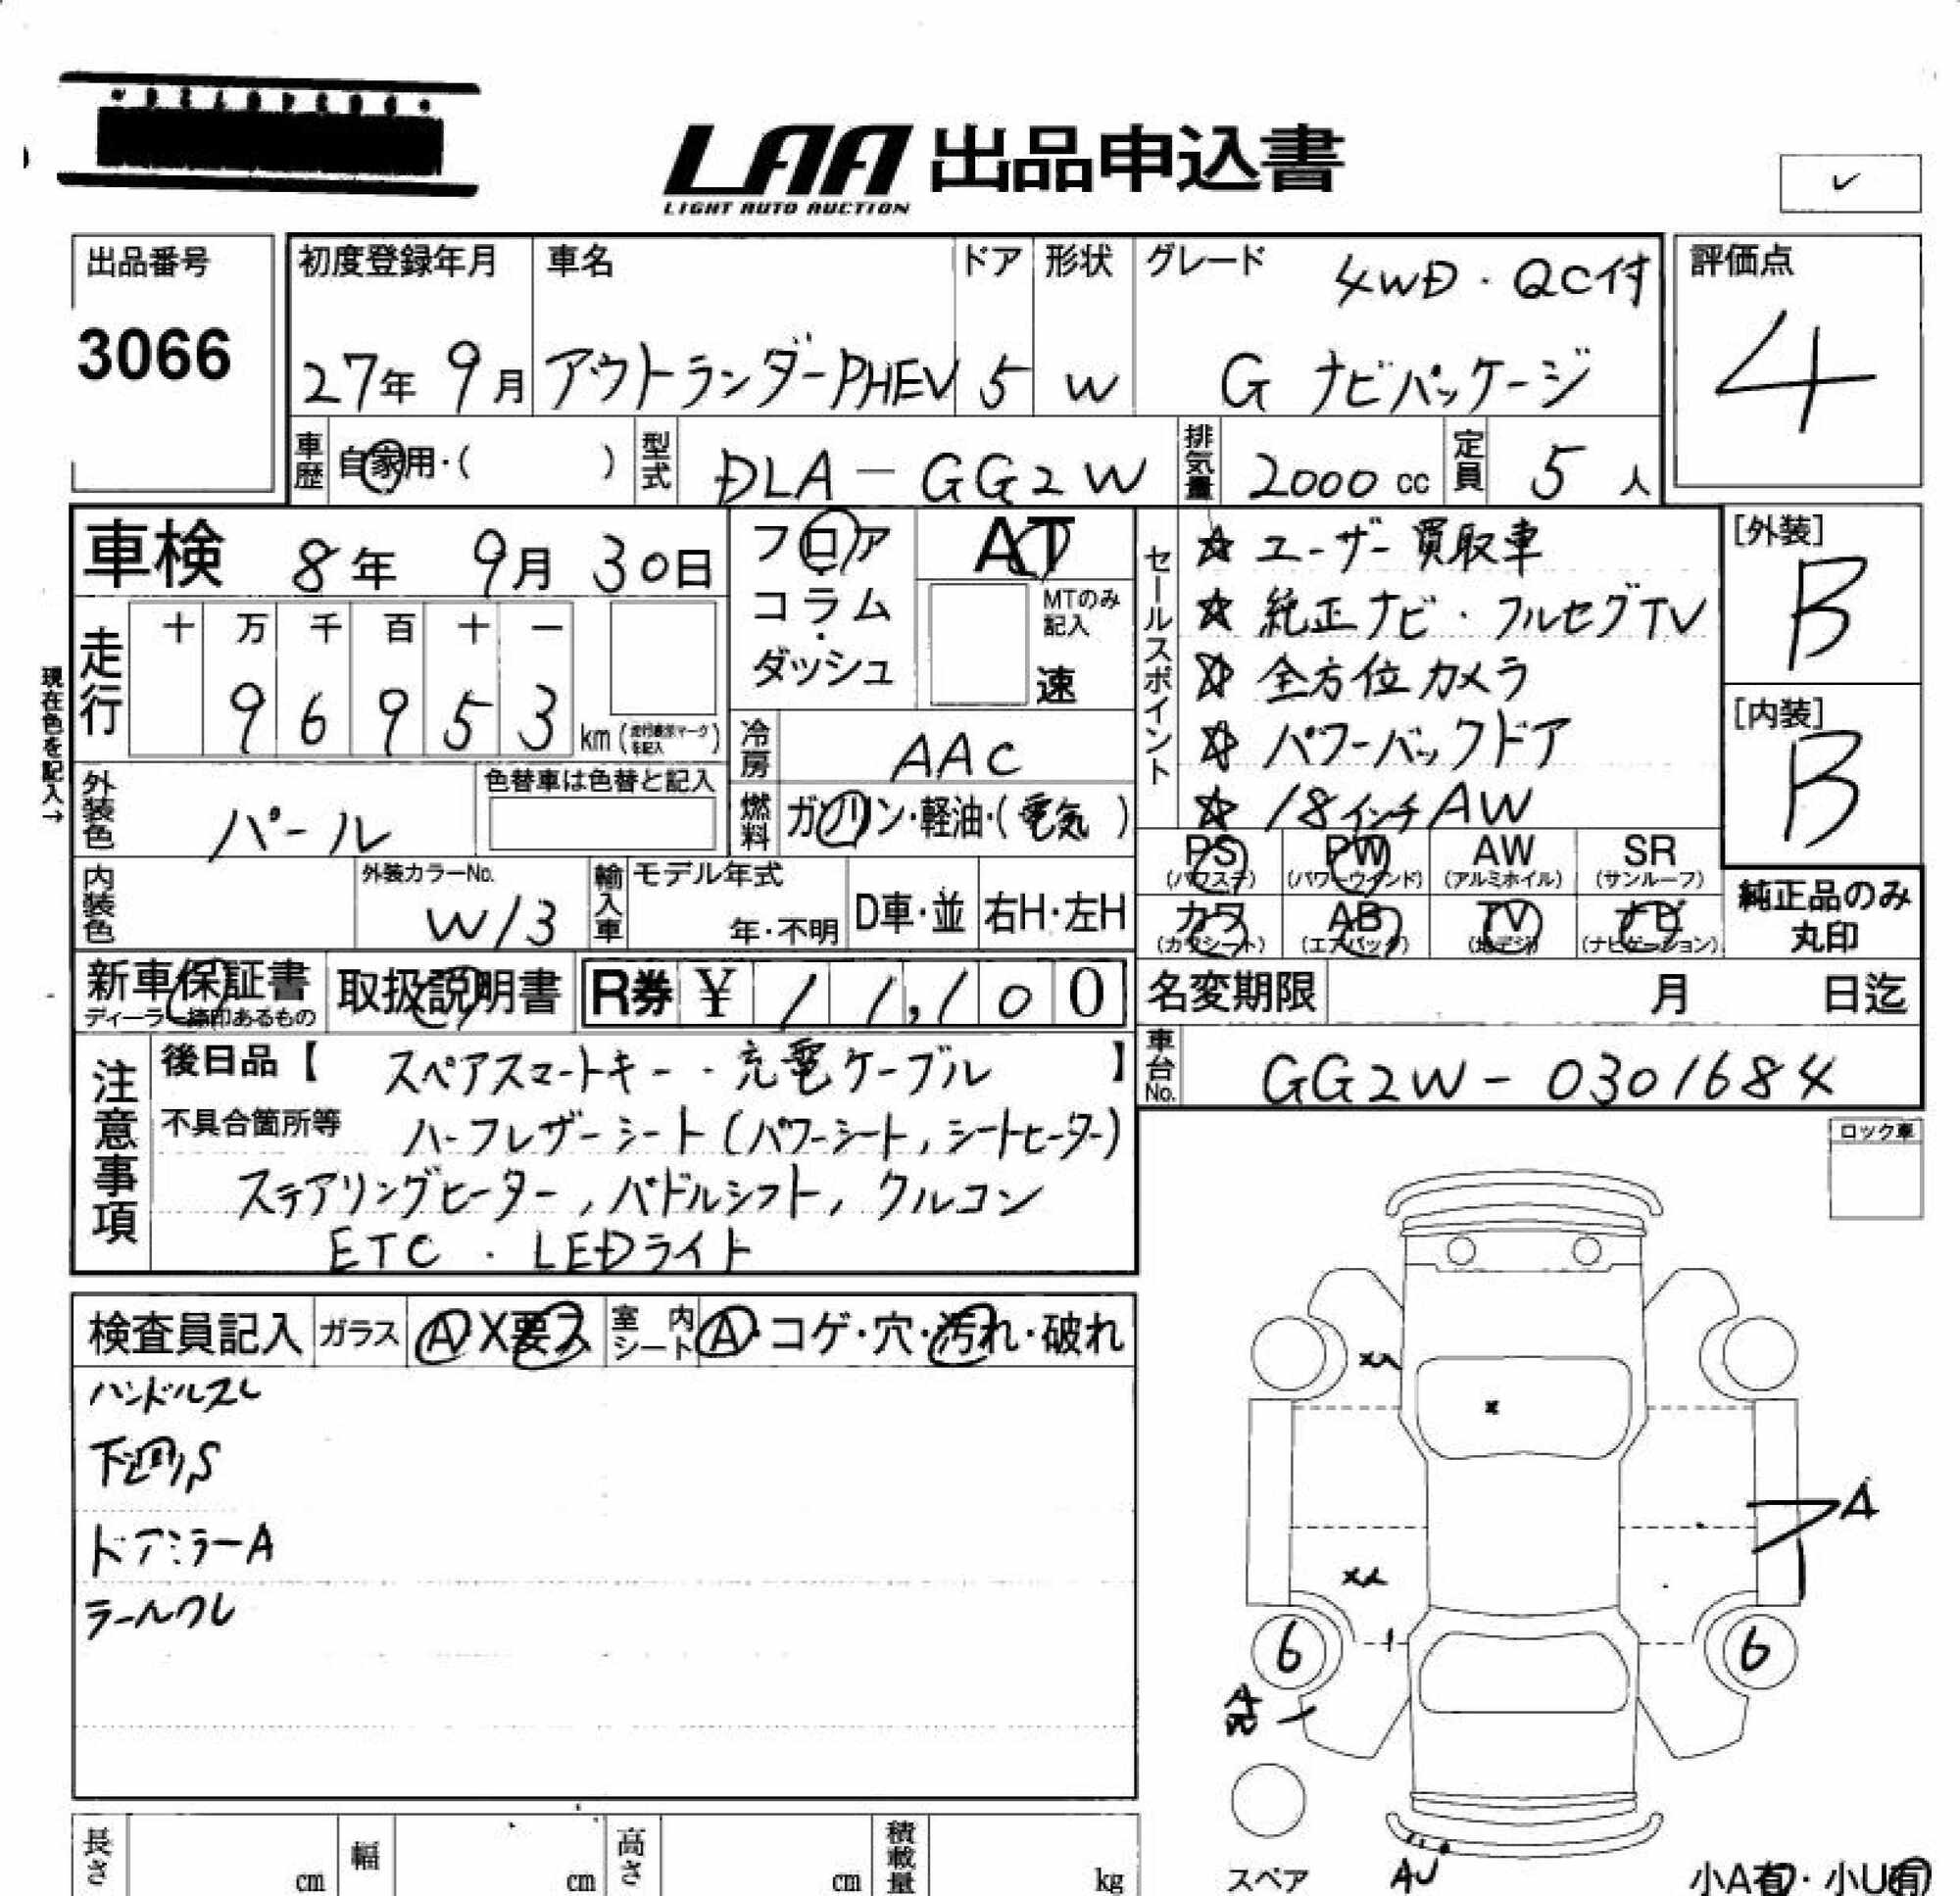 LAA 出品申込書
LIGHT AUTO AUCTION
出品番号
3066
初度登録年月
27年 9月
車名
アウトランダーPHEV
ドア
5
形状
W
グレード
4WD・QC付
G ナビパッケージ
評価点
4
車歴 自家用・( )
型式 DLA-GG2W
排気量 2000 cc
定員 5 人
車検 8年 9月 30日
フロア
コラム
・
ダッシュ
AT
MTのみ
記入
速
走行
十 万 千 百 十 一
9 6 9 5 3 km
現在色を記入→
冷房 AAC
燃料 ガソリン・軽油・(電気)
外装色 パール
色替車は色替と記入
内装色
外装カラーNo.
W13
輸入車
モデル年式
年・不明
D車・並
右H・左H
セールスポイント
☆ ユーザー買取車
☆ 純正ナビ・フルセグTV
☆ 全方位カメラ
☆ パワーバックドア
☆ 18インチAW
[外装]
B
[内装]
B
PS
(パワステ)
PW
(パワーウインド)
AW
(アルミホイル)
SR
(サンルーフ)
カワ
(カワシート)
AB
(エアバック)
TV
(地デジ)
ナビ
(ナビゲーション)
純正品のみ
丸印
新車保証書
ディーラー捺印あるもの
取扱説明書
R券 ¥ 11,100
名変期限 月 日迄
車台No. GG2W-0301684
注意事項
後日品【 スペアスマートキー・充電ケーブル 】
不具合箇所等 ハーフレザーシート(パワーシート,シートヒーター)
ステアリングヒーター,パドルシフト,クルコン
ETC・LEDライト
ロック車
検査員記入 ガラス A X要ス 室内シート A・コゲ・穴・汚れ・破れ
ハンドルスレ
下廻りS
ドアミラーA
XA
A
XA
6
6
A
スペア
AU
小A有・小U有
長さ cm
幅 cm
高さ cm
積載量 kg